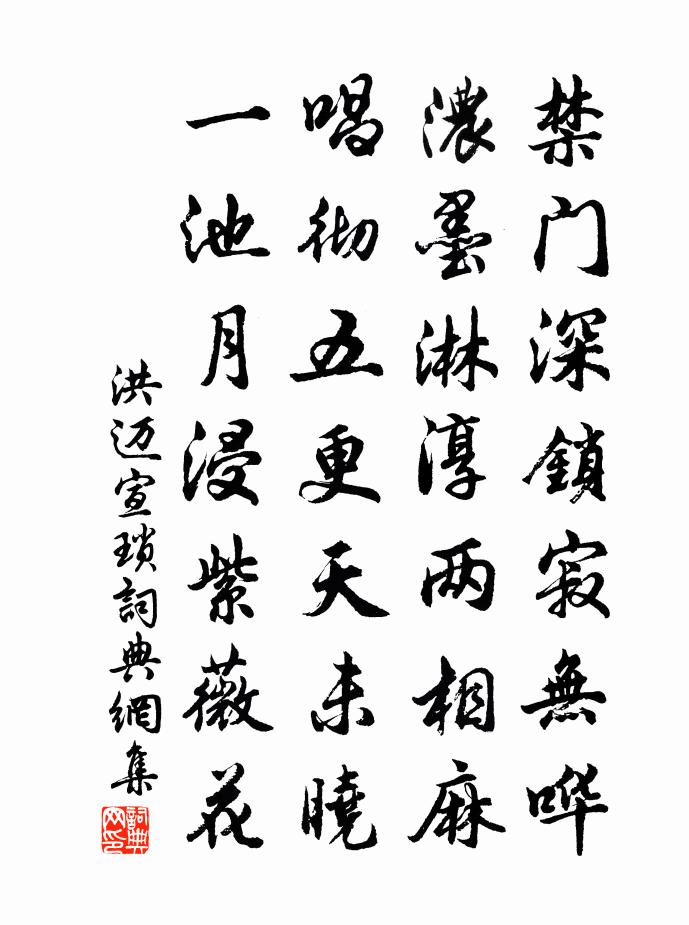 禁门深鎖寂無哗
濃墨淋淳两相麻
唱彻五更天未曉
一池月浸紫薇花
洪迈宣瑣詞典網集
詞典网印